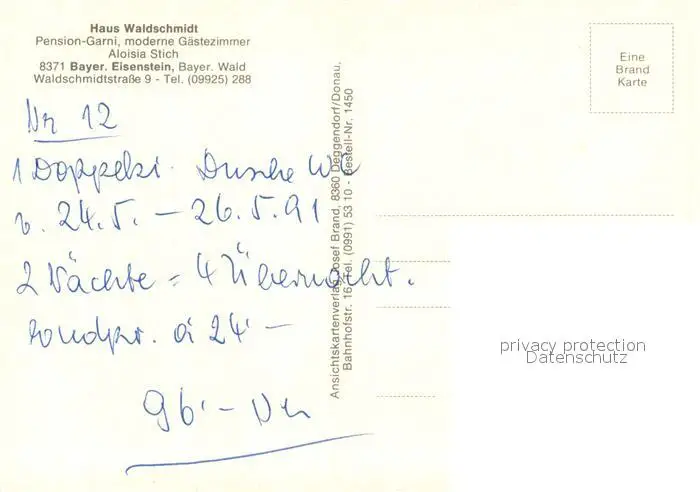 Haus Waldschmidt
Pension-Garni, moderne Gästezimmer
Aloisia Stich
8371 Bayer. Eisenstein, Bayer. Wald
Waldschmidtstraße 9 - Tel. (09925) 288
Eine
Brand
Karte
Nr 12
1 Doppelzi. Dusche WC
v. 24.5. — 26.5.91
2 Nächte = 4 Übernacht.
à 24.—
96.—
Ansichtskartenverlag Josef Brand, 8360 Deggendorf/Donau,
Bahnhofstr. 16 - Tel. (0991) 53 10 - Bestell-Nr. 1450
privacy protection
Datenschutz